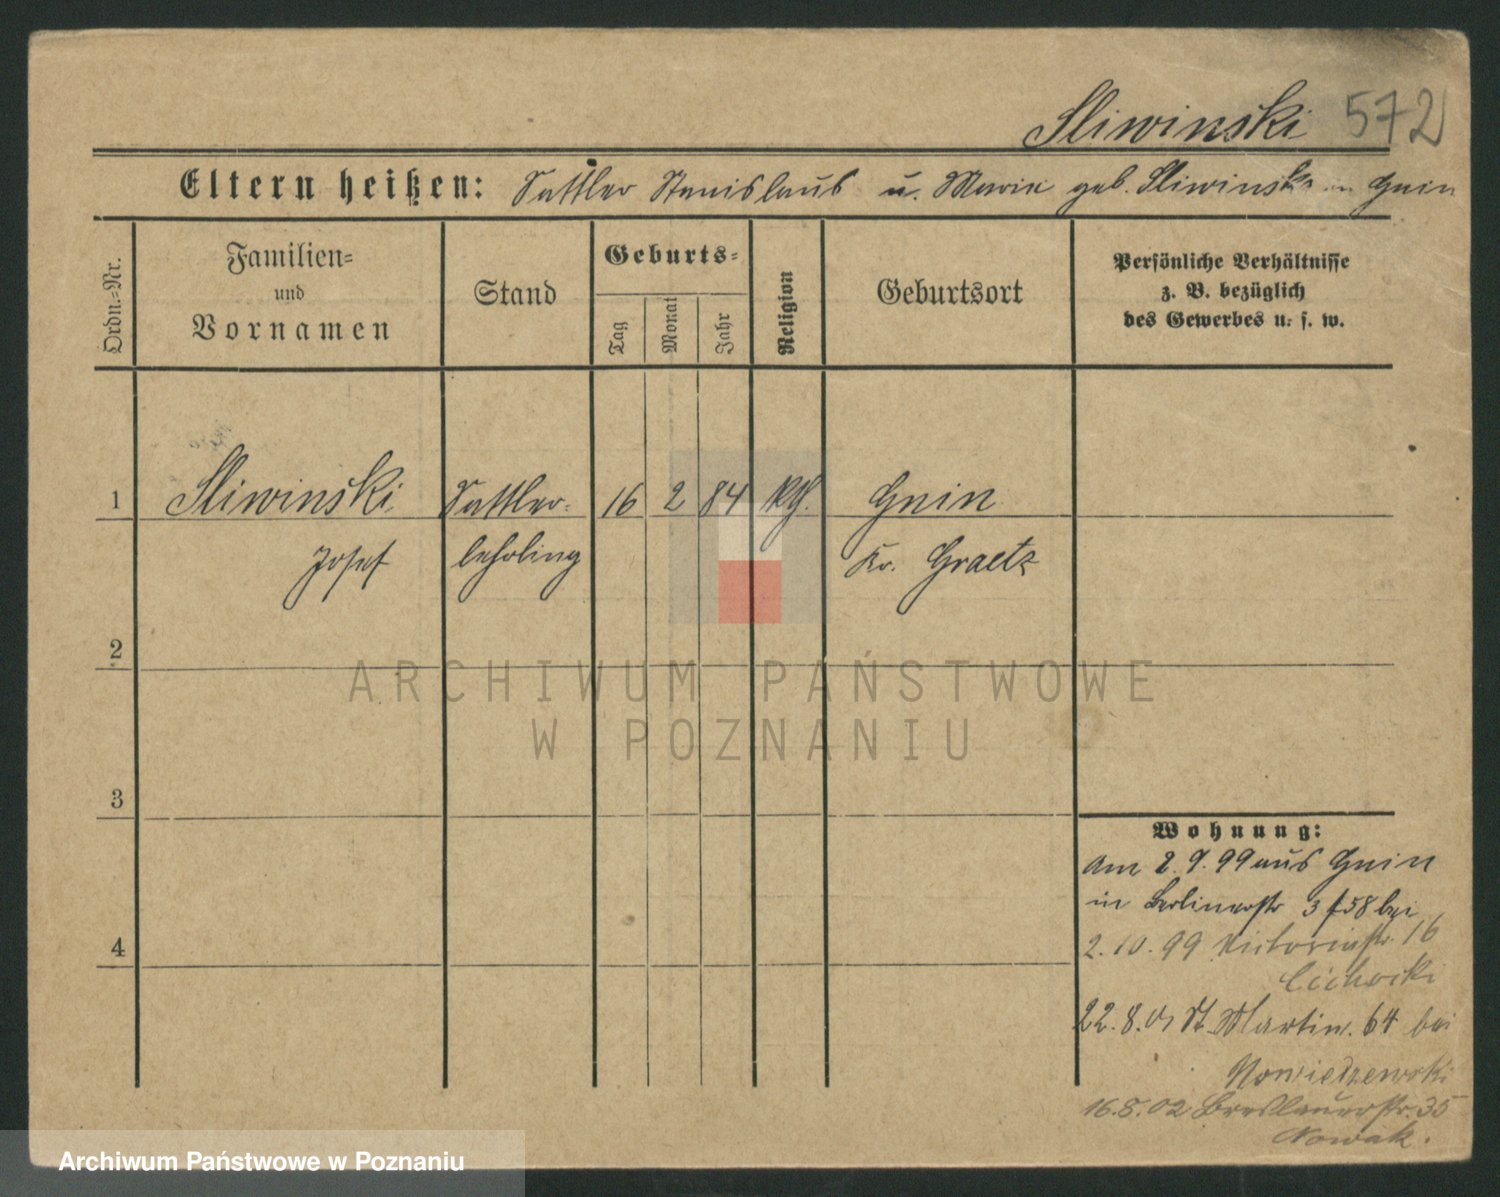 Sliwinski 572
Eltern heißen: Sattler Stanislaus u. Marie geb. Sliwinska in Gnin
Ordn.=Nr.
Familien=
und
Vornamen
Stand
Geburts=
Tag
Monat
Jahr
Religion
Geburtsort
Persönliche Verhältnisse
z. B. bezüglich
des Gewerbes u. s. w.
1 Sliwinski Sattler- 16 2 84 kth. Gnin
Josef lehrling Kr. Graetz
2
3
4
Wohnung:
Am 2.9.99 aus Gnin
in Berlinerstr 3 bei
2.10.99 Victoriastr. 16
Cichocki
22.8.01 St. Martin. 64 bei
16.8.02 Breslauerstr. 35
Nowak.
ARCHIWUM PAŃSTWOWE
W POZNANIU
Archiwum Państwowe w Poznaniu